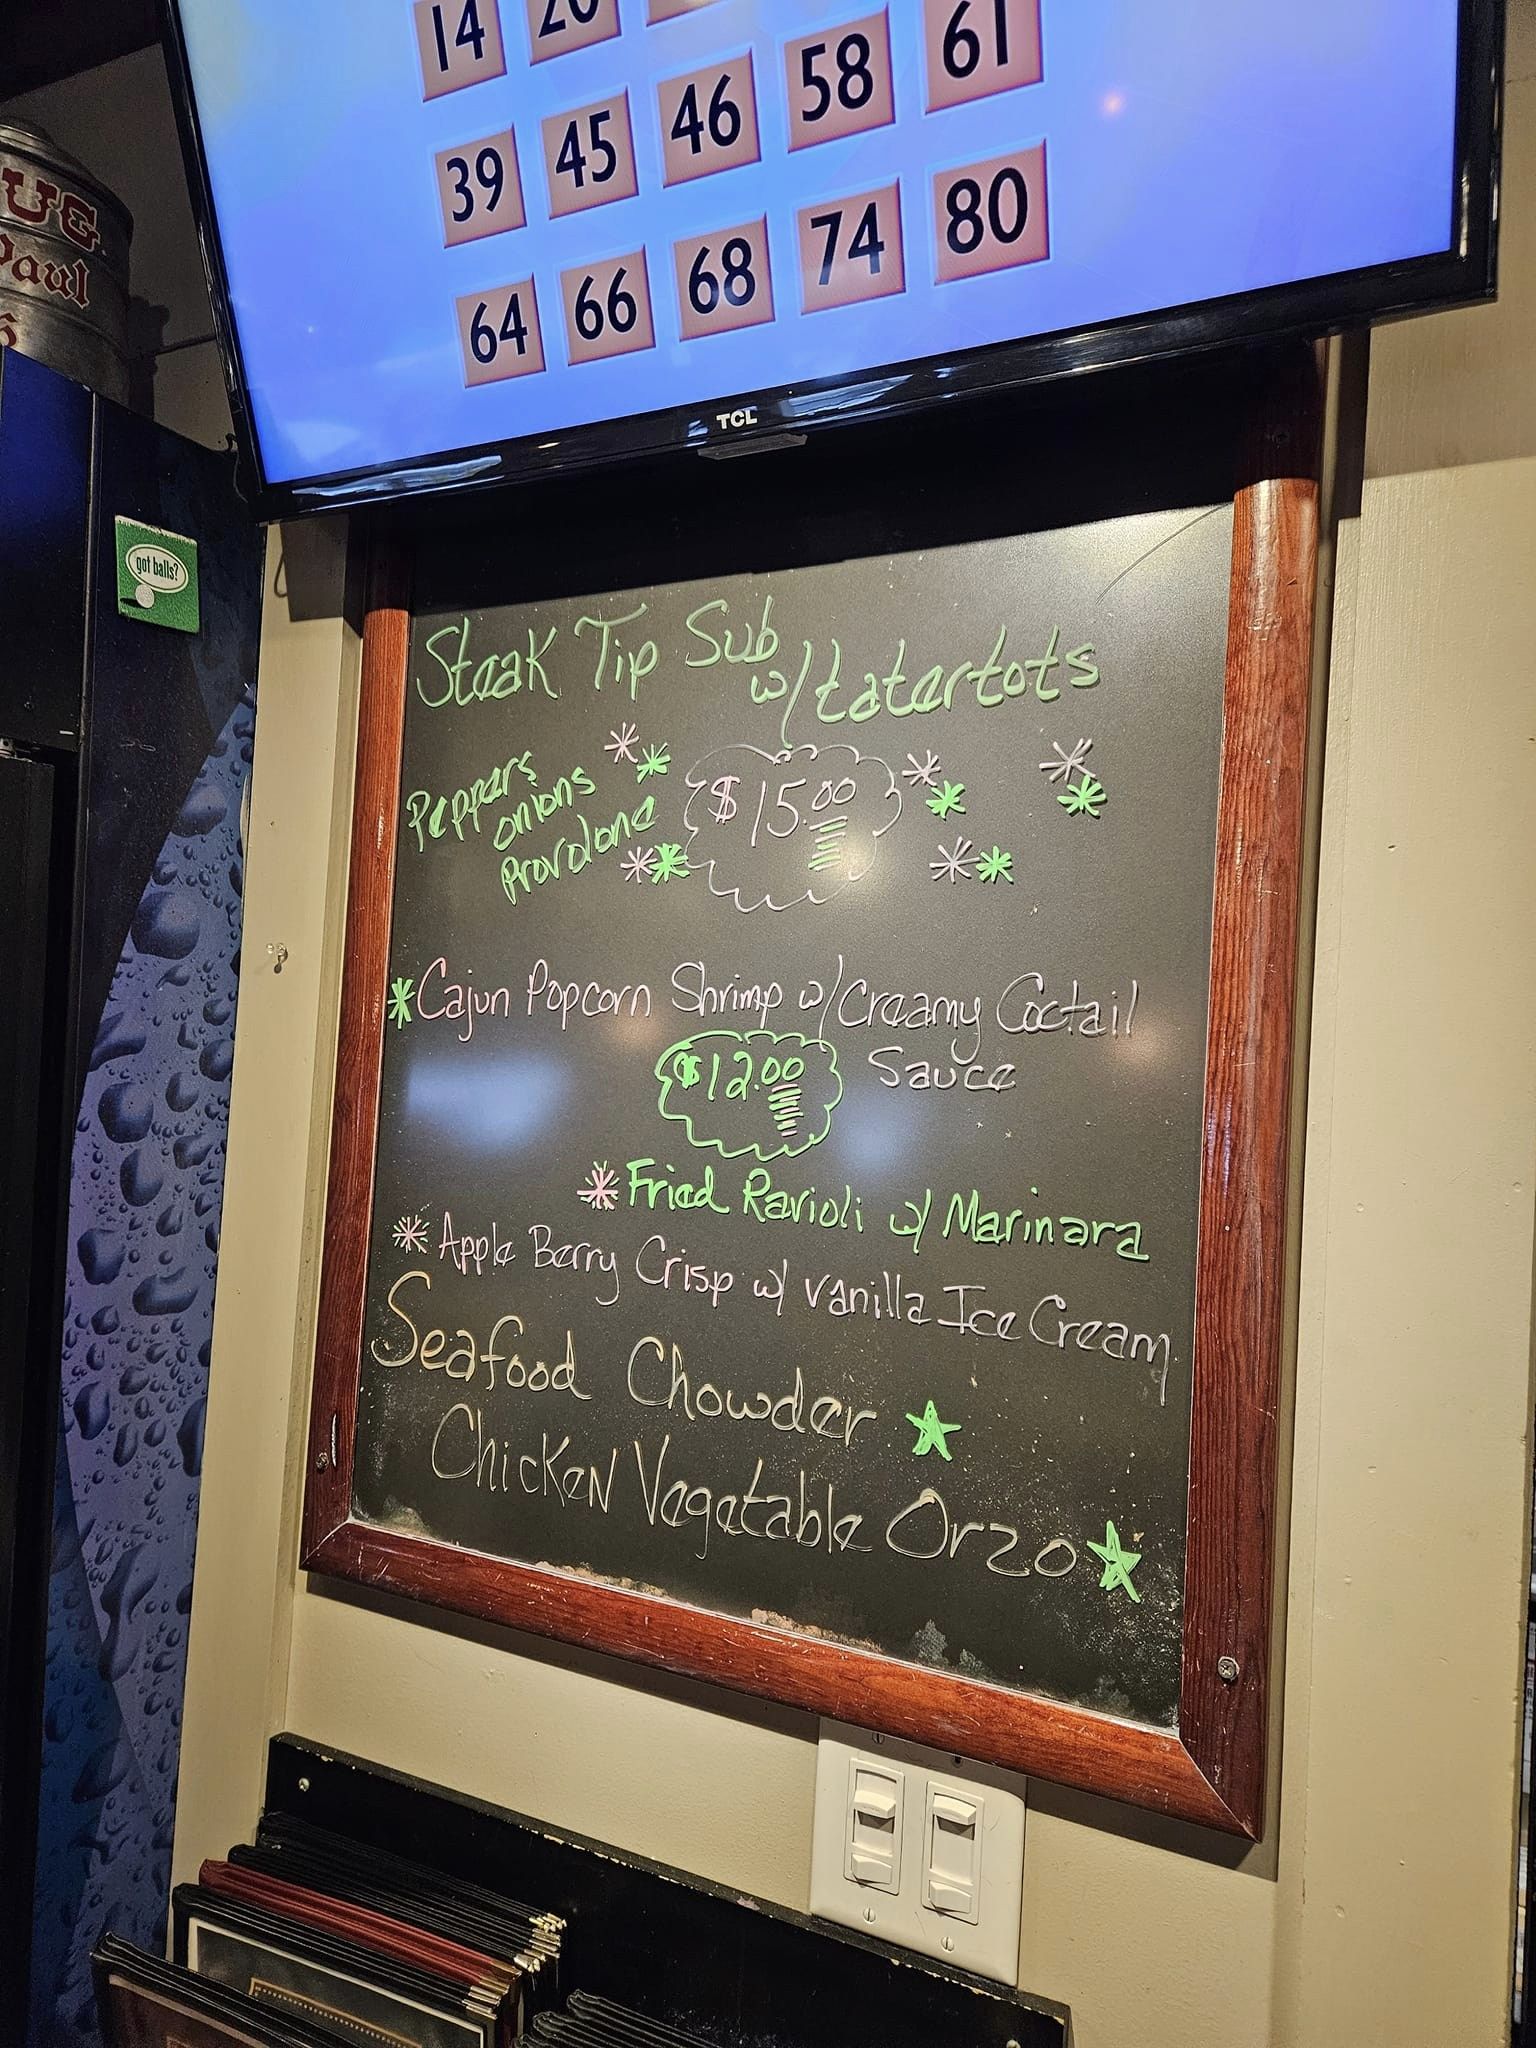 14 20
39 45 46 58 61
64 66 68 74 80
TCL
UE
Paul
got balls?
Steak Tip Sub
w/tatertots
Peppers
onions
Provolone
$15.00
Cajun Popcorn Shrimp w/Creamy Coctail
Sauce
$12.00
Fried Ravioli w/ Marinara
Apple Berry Crisp w/ Vanilla Ice Cream
Seafood Chowder
Chicken Vegetable Orzo